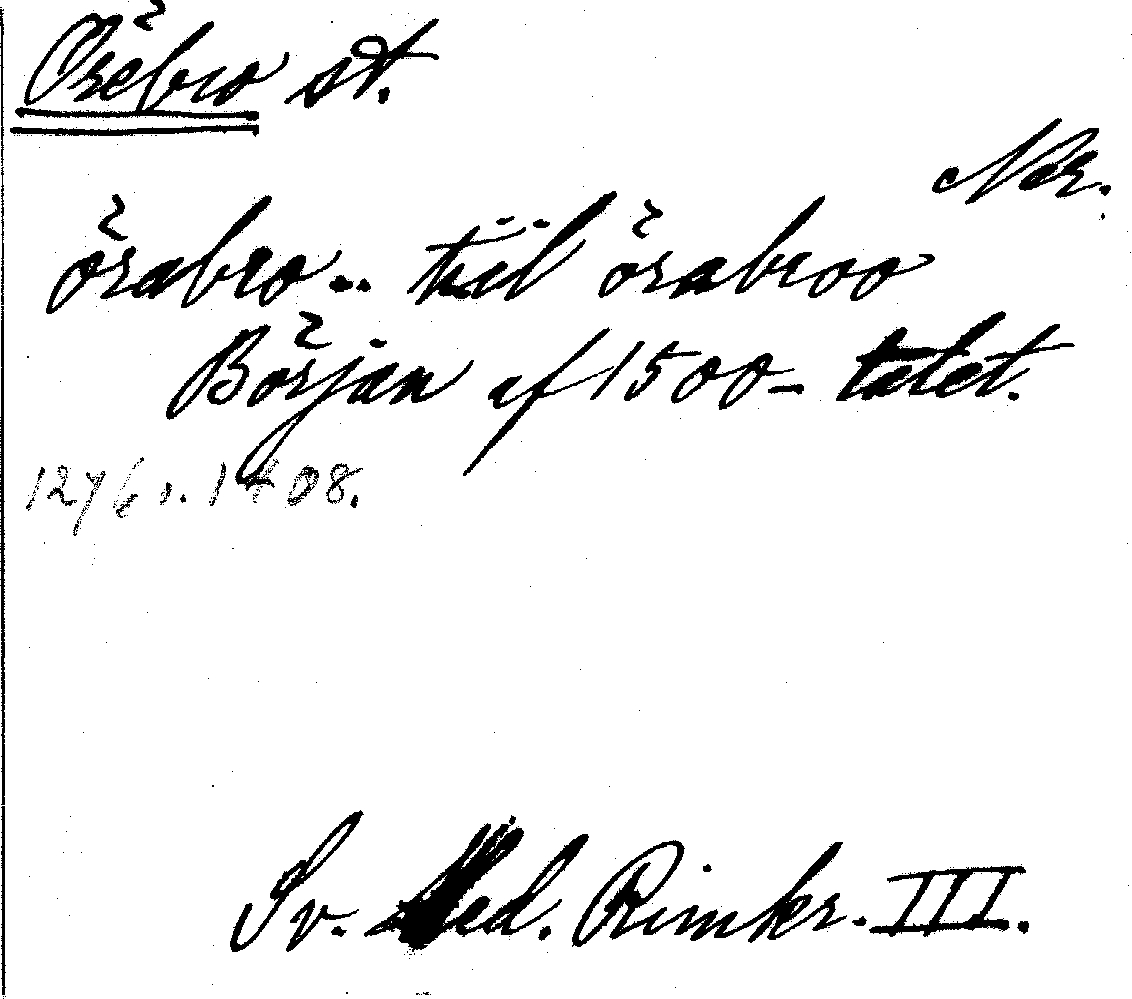 Örebro st.
När.
örabro.. tiil örabroo
Början af 1500-talet.
1276 s. 1408.
Sv. Med. Rimkr. III.